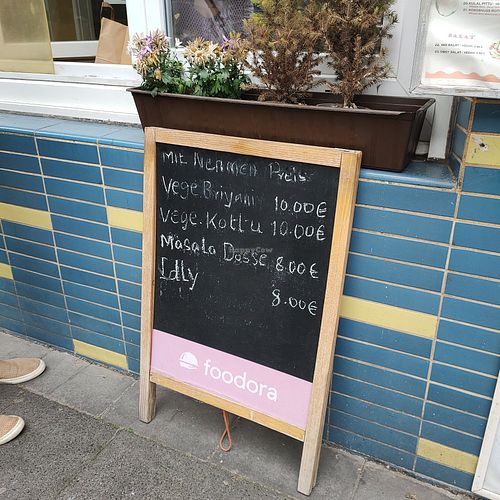 Mit Nehmen Preis
Vege.Briyani 10.00€
Vege.Kottu 10.00€
Masala Dosse 8.00€
Idly 8.00€
foodora
SALAT
HappyCow